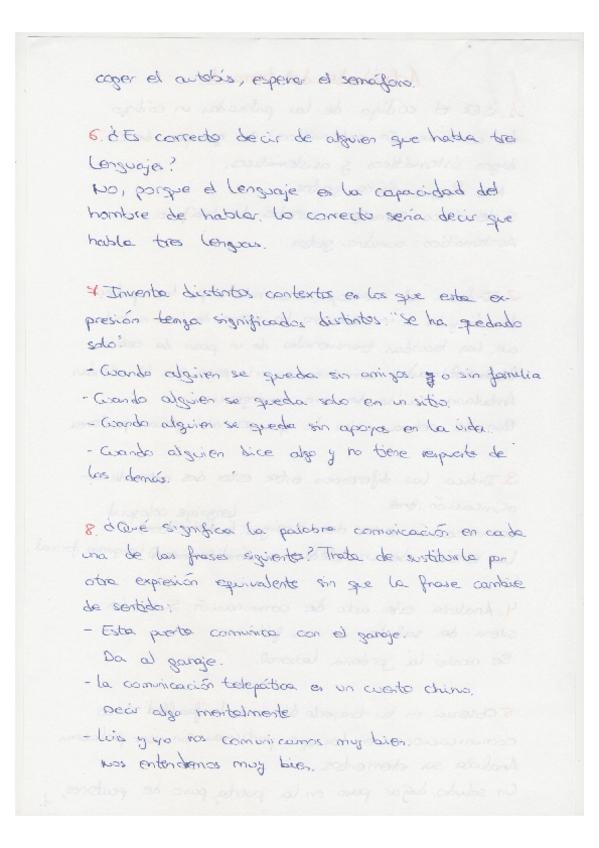 coger el autobús, esperar el semáforo.
6. ¿Es correcto decir de alguien que habla tres
lenguajes?
No, porque el lenguaje es la capacidad del
hombre de hablar. Lo correcto sería decir que
habla tres lenguas.
7. Inventa distintos contextos en los que esta ex-
presión tenga significados distintos "se ha quedado
solo"
- Cuando alguien se queda sin amigos y o sin familia
- Cuando alguien se queda solo en un sitio.
- Cuando alguien se queda sin apoyos en la vida.
- Cuando alguien dice algo y no tiene respuesta de
los demás.
8. ¿Qué significa la palabra comunicación en cada
una de las frases siguientes? Trata de sustituirla por
otra expresión equivalente sin que la frase cambie
de sentido:
- Esta puerta comunica con el garaje.
Da al garaje.
- La comunicación telepática es un cuento chino.
Decir algo mentalmente
- Luis y yo nos comunicamos muy bien.
Nos entendemos muy bien.